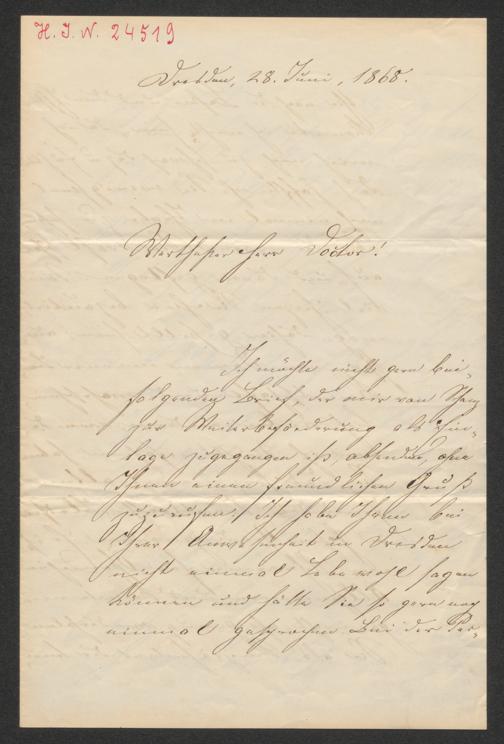 H. I. N. 24519
Dresden, 28. Juni, 1868.
Werthester Herr Doctor!
Ich möchte nicht gern bei-
folgenden Brief, der mir von
zur Weiterbeförderung als Ein-
lage zugegangen ist, absenden, ohne
Ihnen einen freundlichen Gruß
zuzurufen. Ich habe Ihnen bei
Ihrer Anwesenheit in Dresden
nicht einmal Lebewohl sagen
können und hätte Sie so gern noch
einmal gesprochen. Bei der Per-